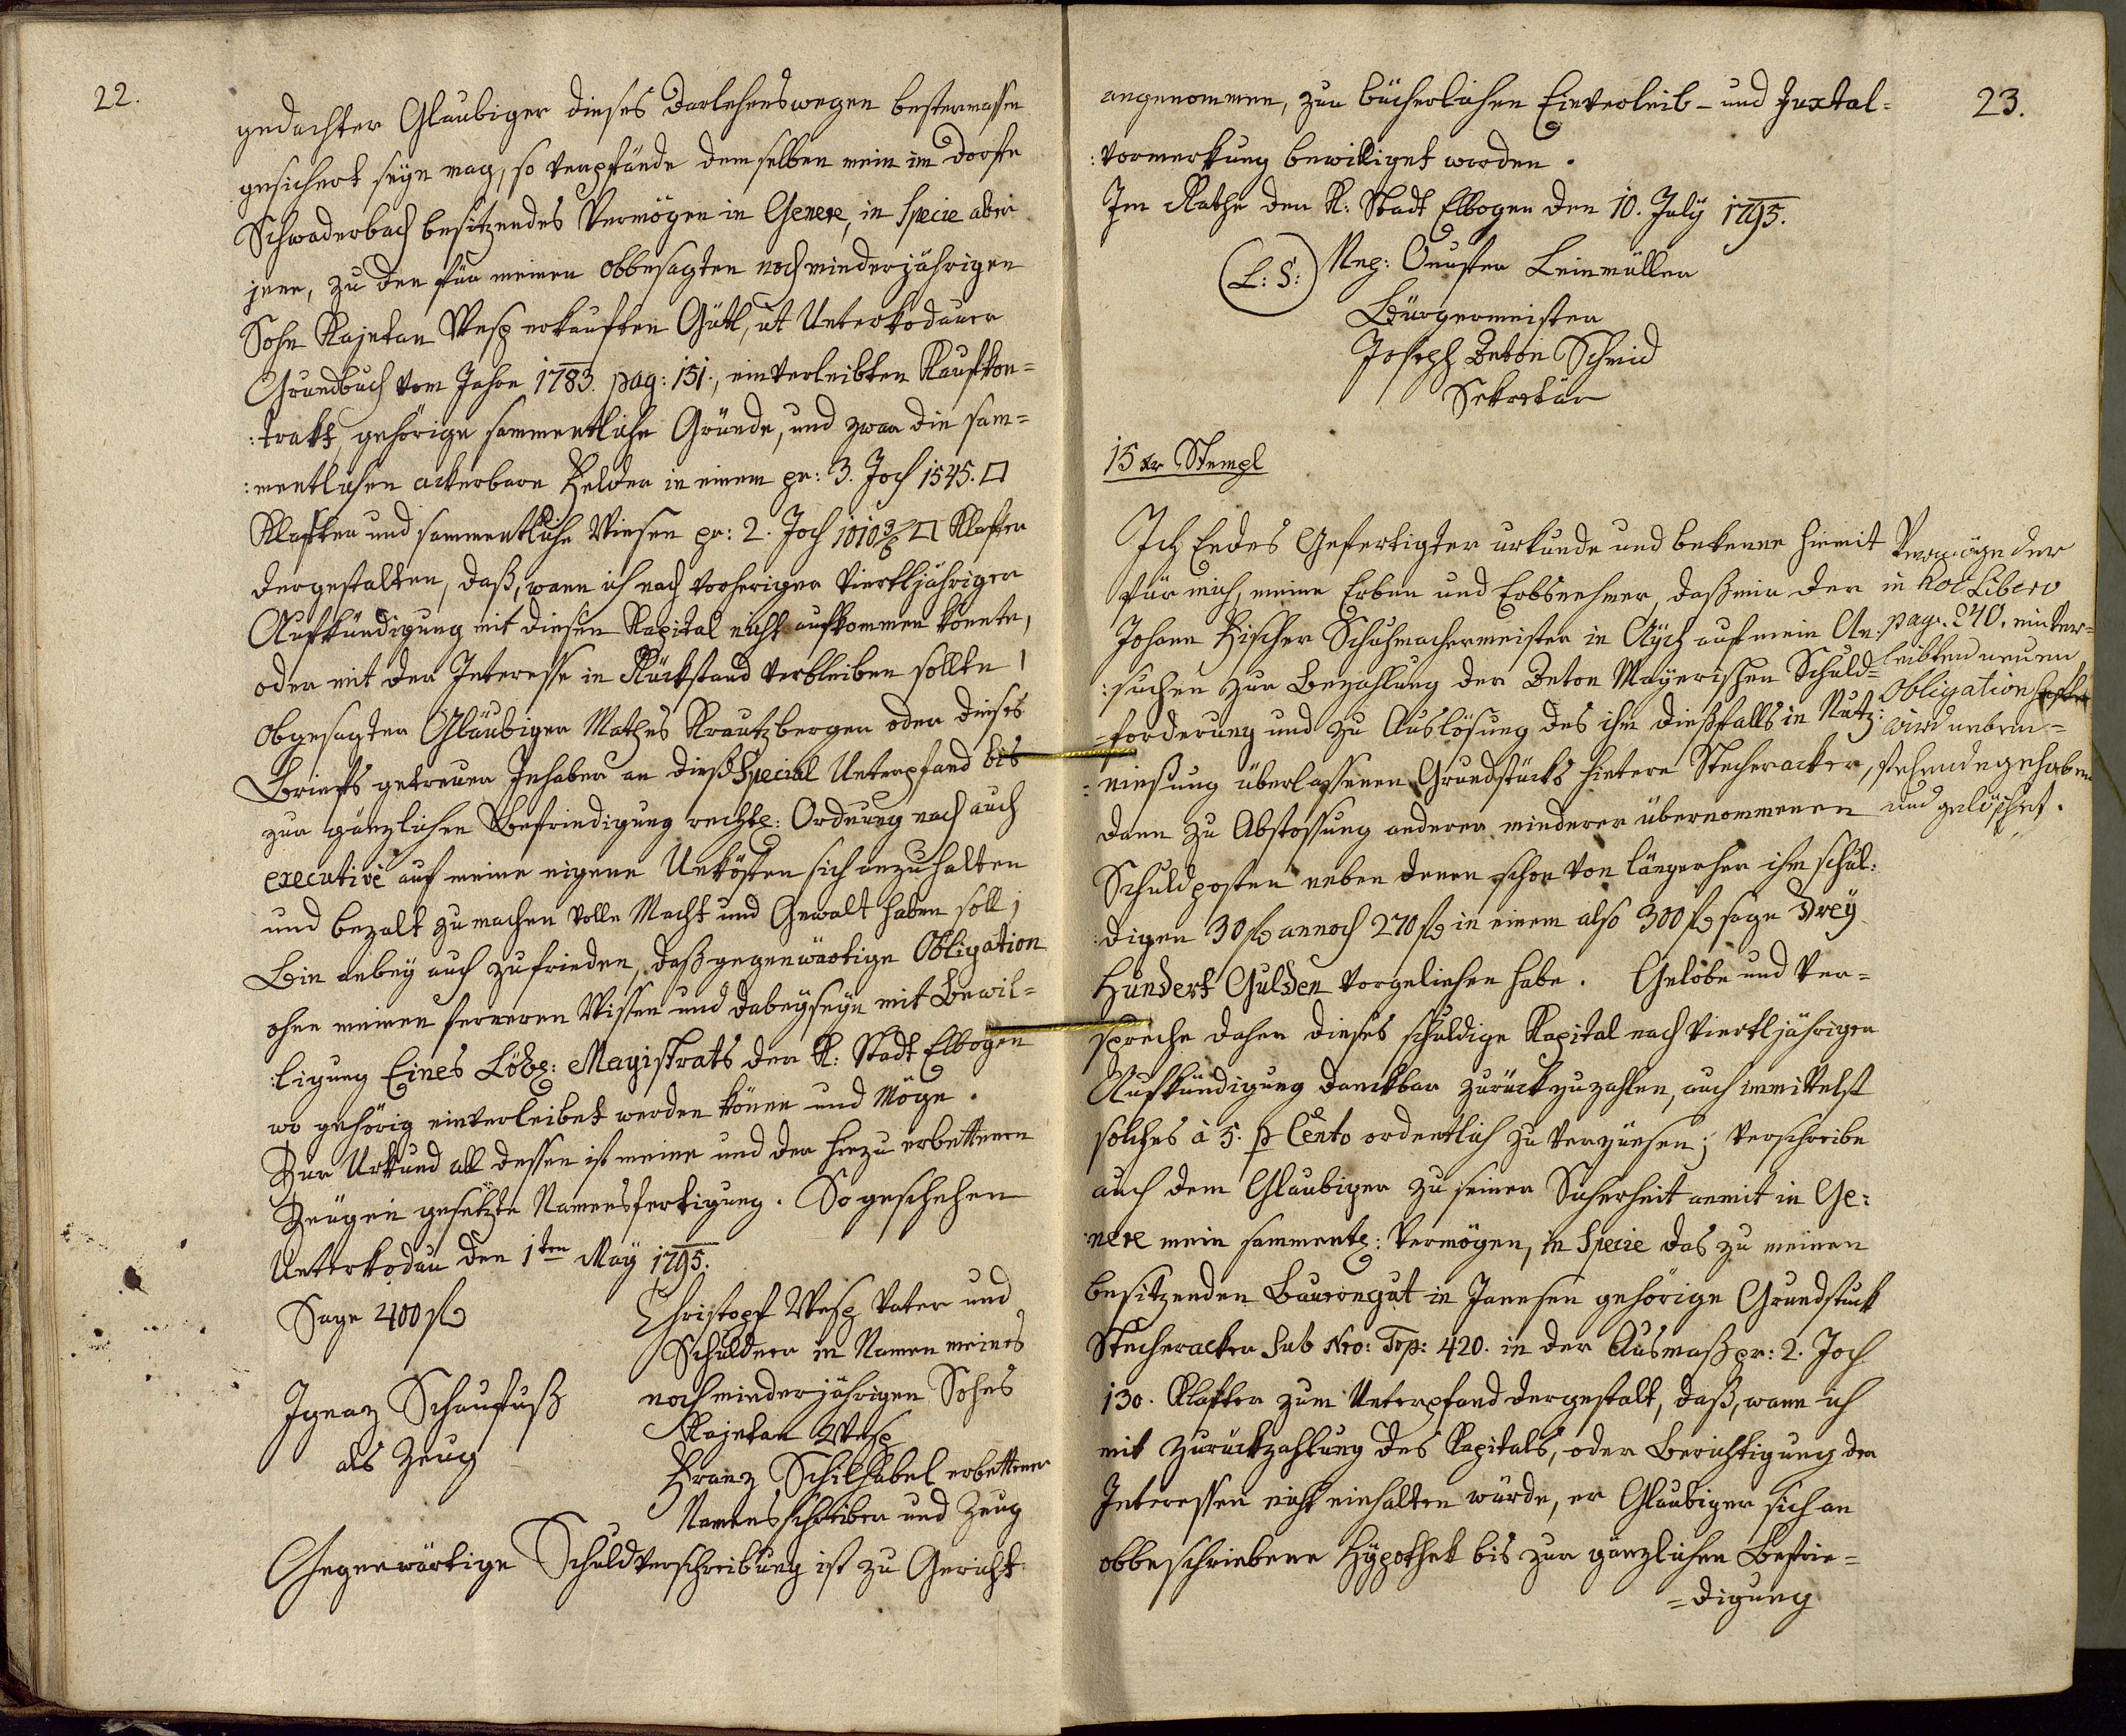 22.
gedachter Glaubiger dieses Darlehenswegen bestermassen
gesichert seyn mag, so verpfände demselben mein im Dorfe
Schwaderbach besitzendes Vermögen in Genere, in Specie aber
jene, zu der für meinen obbesagten noch minderjährigen
Sohn Kajetan erkauften Gütl, ut Unterkodauer
Grundbuch vom Jahre 1783. pag: 151., einverleibten Kaufkon=
:trakt, gehörige sammentliche Gründe, und zwar die sam=
:mentlichen ackerbare Felder in einem pr: 3. Joch 1545. □
Klafter und sammentliche Wiesen pr: 2. Joch 1010 3/6 □ Klafter
dergestalten, daß, wann ich nach vorheriger viertljähriger
Aufkündigung mit diesen Kapital nicht aufkommen könnte,
oder mit der Interesse in Rückstand verbleiben sollte,
obgesagter Glaubiger Mathes Krautzberger oder dieses
Briefs getreuer Inhaber an dieß Special Unterpfand bis
zur gänzlichen Befriedigung rechtl: Ordnung nach auch
executivè auf meine eigene Unkösten sich anzuhalten
und bezalt zu machen volle Macht und Gewalt haben soll;
Bin anbey auch zufrieden, daß gegenwärtige Obligation
ohne meinen ferneren Wissen und dabeyseyn mit Bewil=
:ligung Eines Löbl: Magistrats der K: Stadt Elbogen
wo gehörig einverleibet werden könne und möge.
Zur Urkund all dessen ist meine und der hiezu erbettenen
Zeugen gesetzte Namensfertigung. So geschehen
Unterkodau den 1ten May 1795.
Sage 400 fl
Christoph Vater und
Schuldner in Namen meines
noch minderjährigen Sohns
Kajetan
Ignaz Schaufuß
als Zeug
Franz Schilhabel erbettener
Namensschreiber und Zeug
Gegenwärtige Schuldverschreibung ist zu Gericht
23.
angenommen, zur bücherlichen Einverleib- und Juxtal=
:vormerkung bewilliget worden.
Im Rathe der K: Stadt Elbogen den 10. July 1795.
L: S:
Leinmüller
Bürgermeister
Joseph Anton Schmid
Sekretär
15 kr Stempl
Ich Endes Gefertigter urkunde und bekenne hiemit
für mich, meine Erben und Erbsnehmer, daß mir der
Johann Fischer Schuhmachermeister in Aych auf mein An=
:suchen zur Bezahlung der Anton Mayerischen Schuld=
=forderung und zu Auslösung des ihm dießfalls in Nutz:
=niesung überlassenen Grundstücks hintere Stecheracker,
dann zu Abstossung anderer minderer übernommenen
Schuldposten neben denen schon von längerher ihm schul:
:digen 30 fl annoch 270 fl in einem also 300 fl sage Drey
Hundert Gulden vorgeliehen habe. Gelobe und ver=
spreche daher dieses schuldige Kapital nach viertljähriger
Aufkündigung danckbar zurückzuzahlen, auch immittelst
solches à 5. p Cento ordentlich zu verzünsen; verschreibe
auch dem Glaubiger zu seiner Sicherheit anmit in Ge:
nere mein sammentl: Vermögen, in Specie das zu meinen
besitzenden Bauerngut in Janesen gehörige Grundstuck
Stecheracker sub Nro: Top: 420. in der Ausmaß pr: 2. Joch
130. Klafter zum Unterpfand dergestalt, daß, wann ich
mit Zurückzahlung des Kapitals, oder Berichtigung der
Interessen nicht einhalten würde, er Glaubiger sich an
obbeschriebene Hypothek bis zur gänzlichen Befrie=
=digung
Vermöge der
in hoc Libero
pag. 240. einver=
leibten neuen
Obligation
wird neben=
stehende gehoben
und gelöschet.